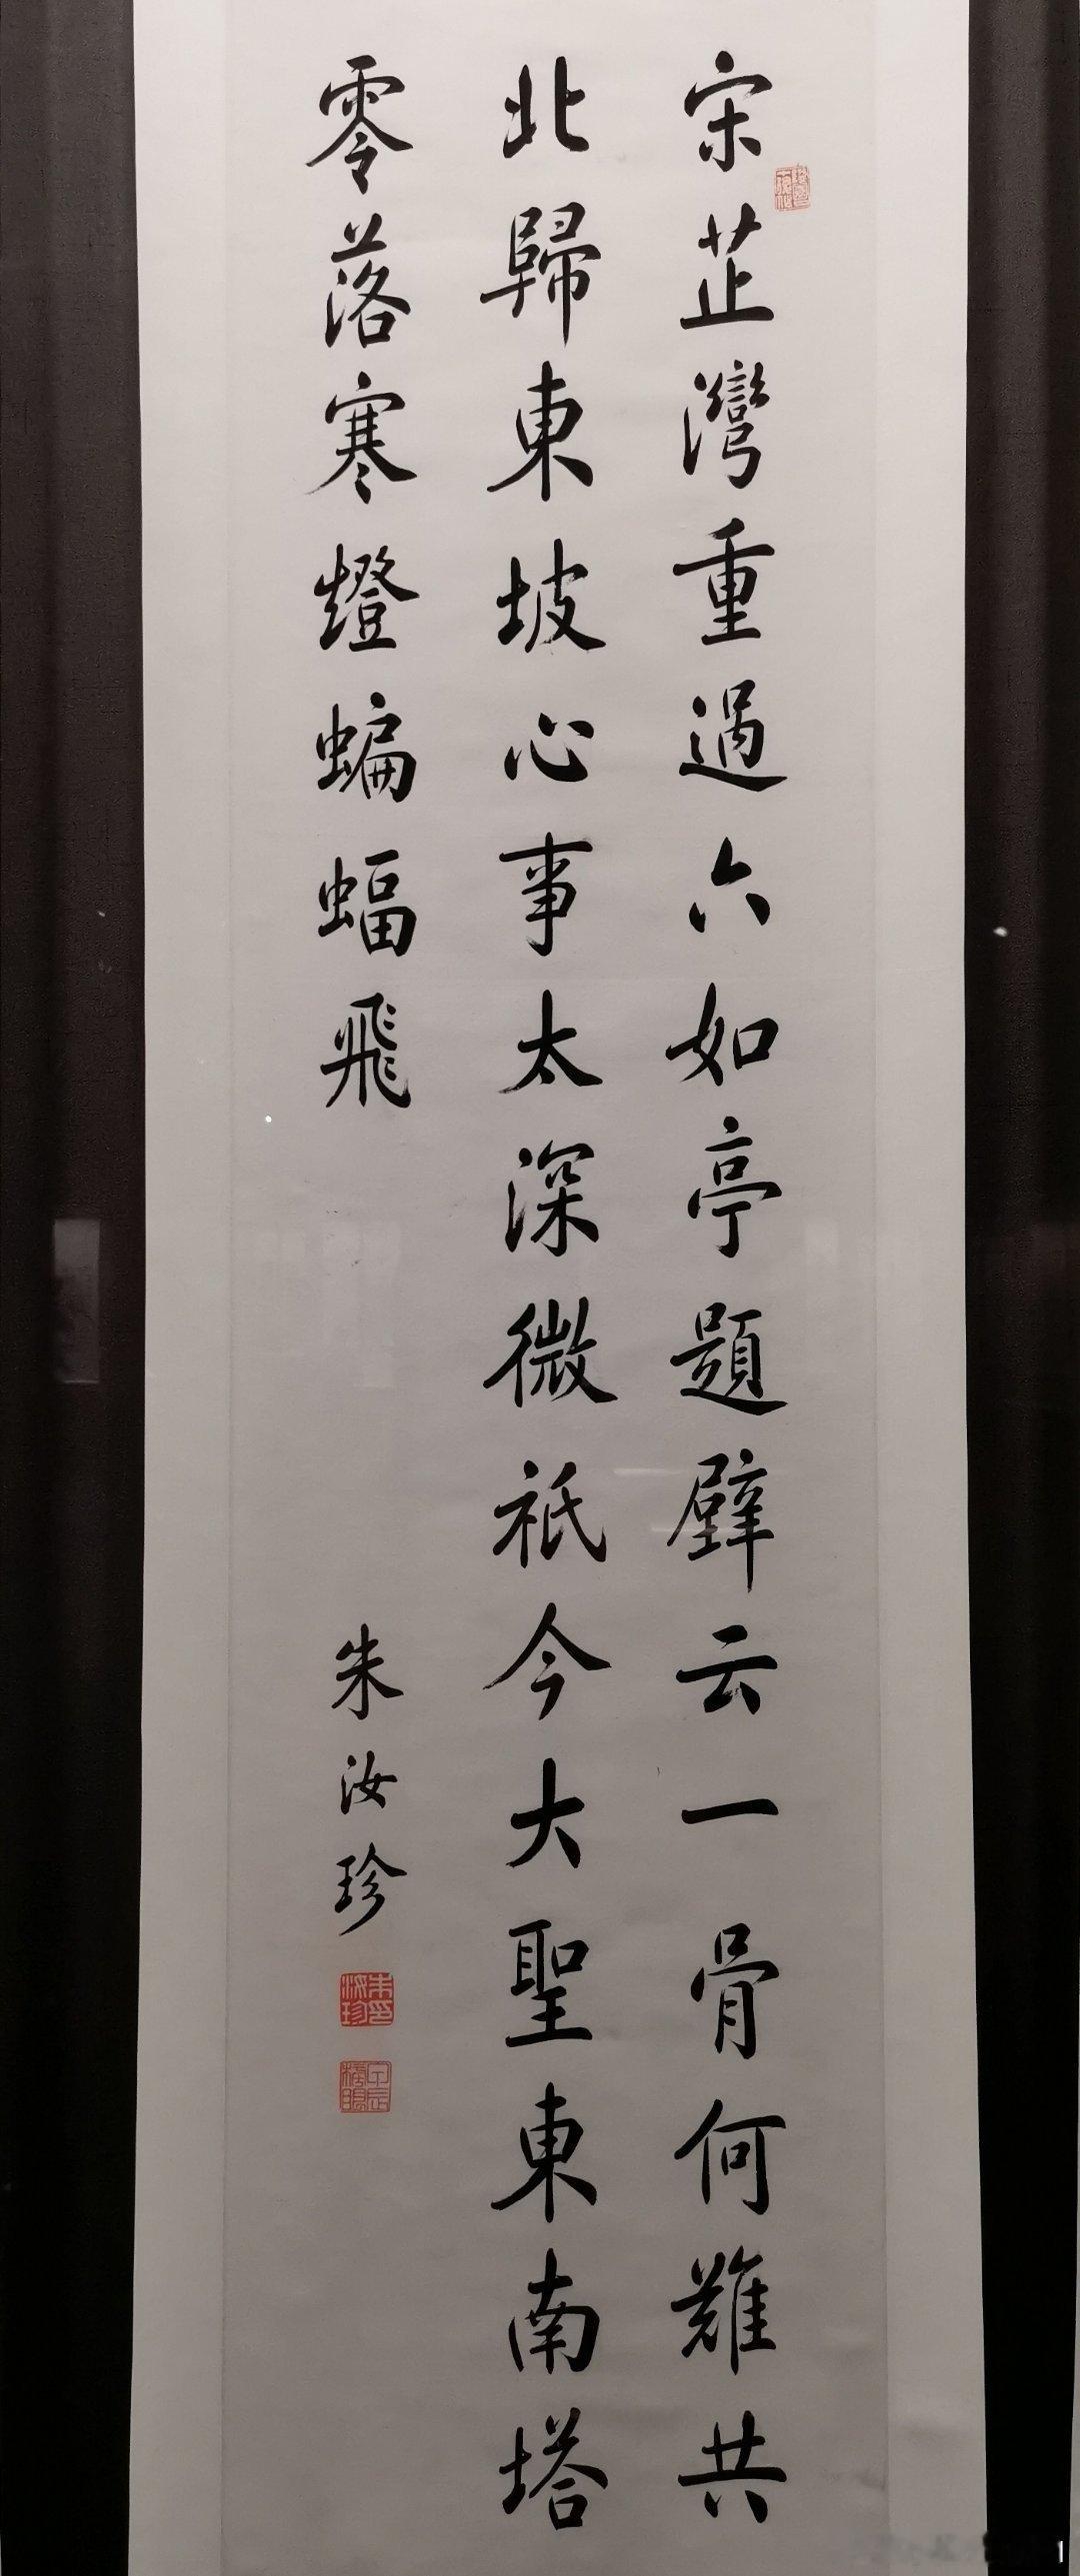 宋芷灣重過六如亭題壁云一骨何難共
北歸東坡心事太深微祇今大聖東南塔
零落寒燈蝙蝠飛
朱汝珍
朱印汝珍
甲辰榜眼